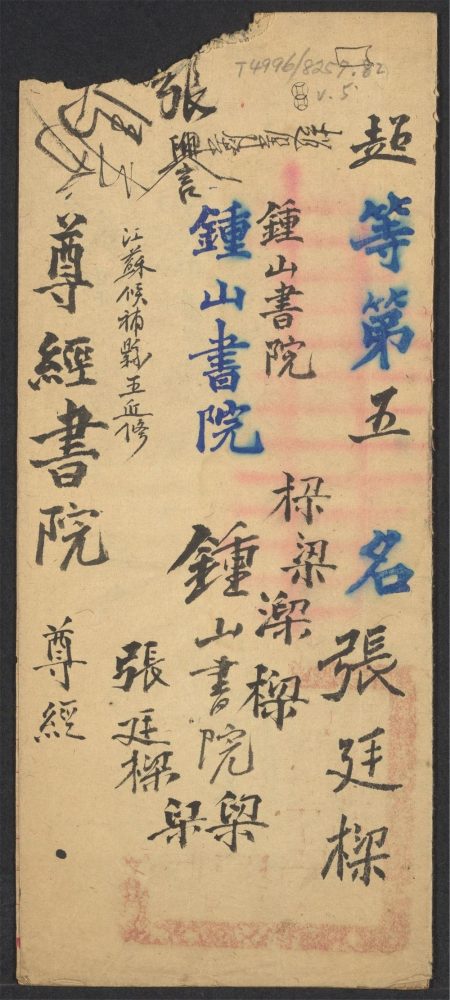 T4996/8259.82
v.5
超等第五名張廷樑
鍾山書院
樑梁
樑
鍾山書院
鍾山書院
張
張廷樑
江蘇候補縣王
尊經書院
尊經